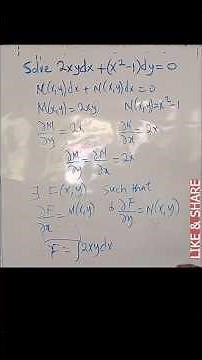 Solve 2xydx + (x²-1)dy = 0
M(x,y)dx + N(x,y)dx = 0
M(x,y) = 2xy N(x,y) = x²-1
∂M/∂y = 2x ∂N/∂x = 2x
∂M/∂y = ∂N/∂x = 2x
∃ F(x,y) such that
∂F/∂x = M(x,y) & ∂F/∂y = N(x,y)
F = ∫2xydx
LIKE & SHARE